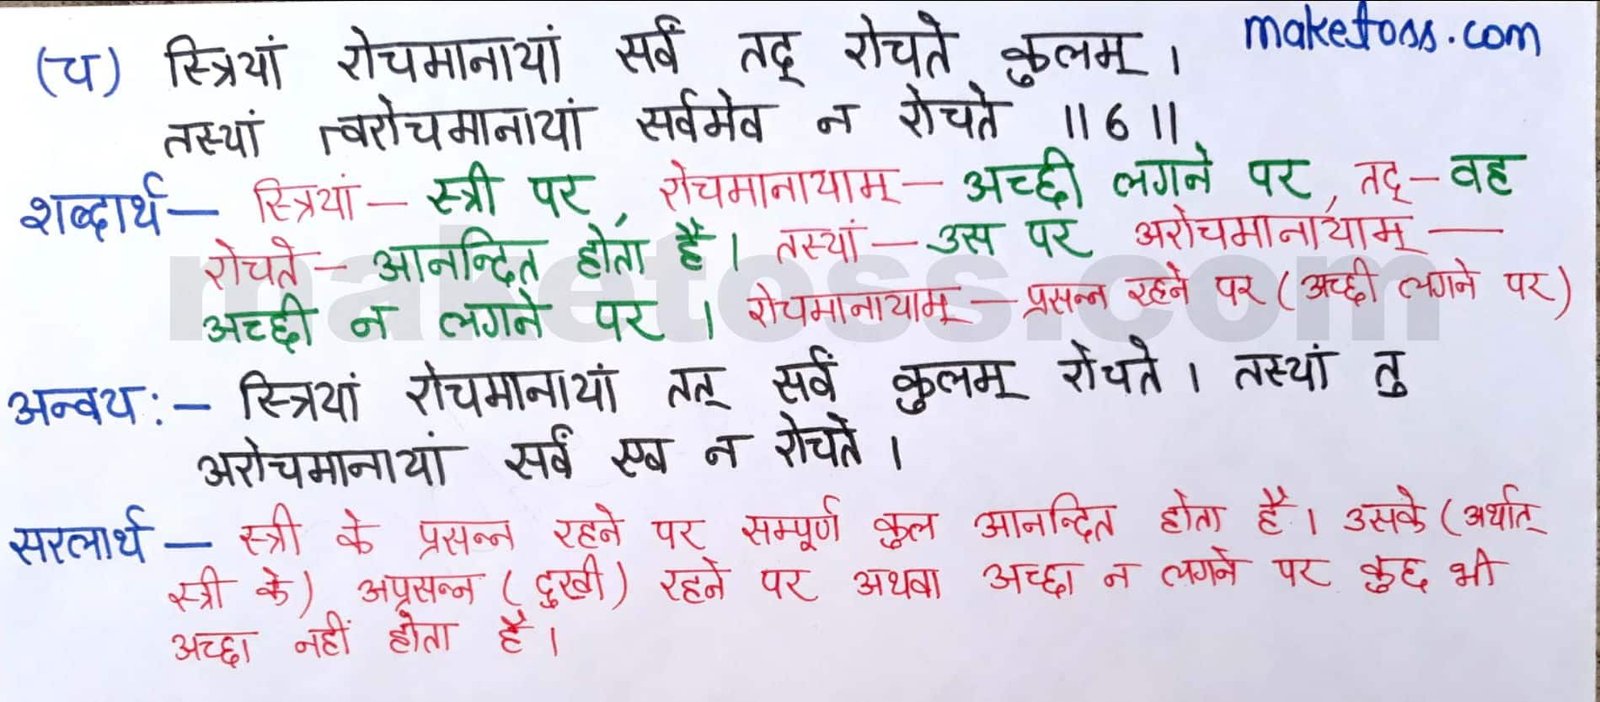 maketoss.com
(च) स्त्रियां रोचमानायां सर्वं तद् रोचते कुलम् ।
तस्यां त्वरोचमानायां सर्वमेव न रोचते ॥6॥
शब्दार्थ – स्त्रियां – स्त्री पर, रोचमानायाम् – अच्छी लगने पर, तद् – वह
रोचते – आनन्दित होता है। तस्यां – उस पर अरोचमानायाम् –
अच्छी न लगने पर । रोचमानायाम् – प्रसन्न रहने पर (अच्छी लगने पर)
maketoss.com
अन्वय: – स्त्रियां रोचमानायां तत् सर्वं कुलम् रोचते । तस्यां तु
अरोचमानायां सर्वं एव न रोचते ।
सरलार्थ – स्त्री के प्रसन्न रहने पर सम्पूर्ण कुल आनन्दित होता है । उसके (अर्थात्
स्त्री के) अप्रसन्न (दुखी) रहने पर अथवा अच्छा न लगने पर कुछ भी
अच्छा नहीं होता है ।